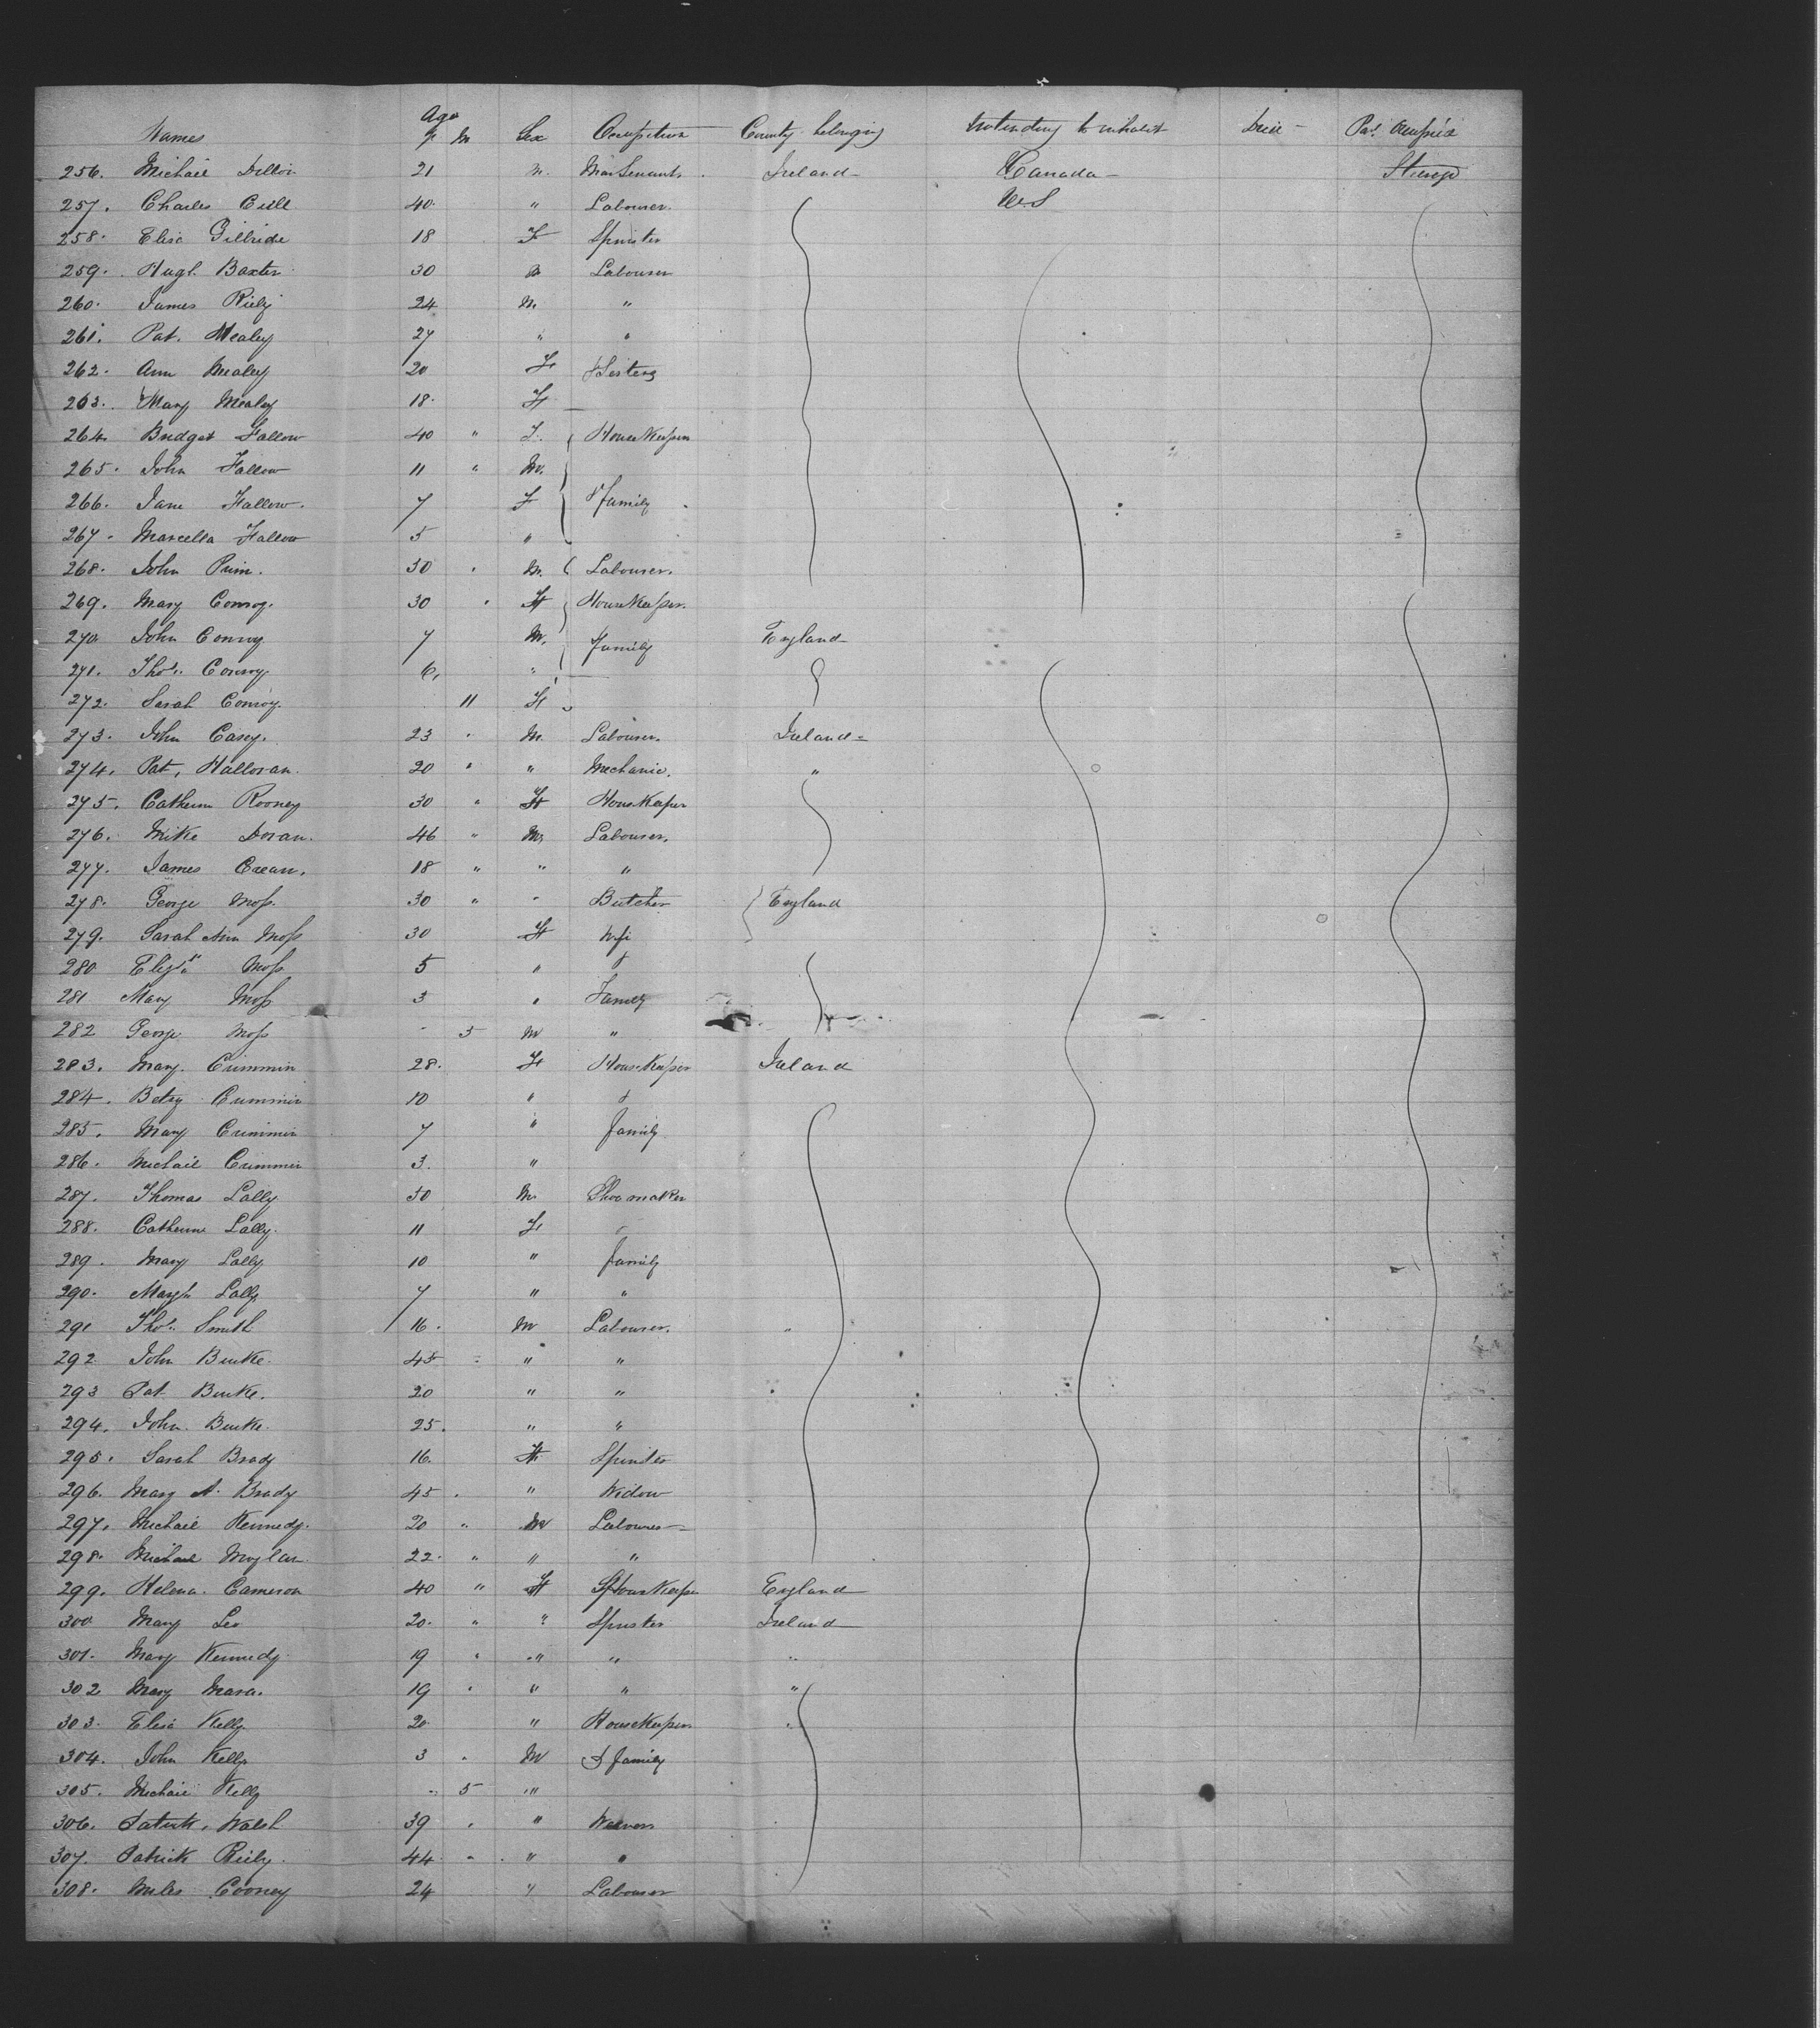 Names Age y. m Sex Occupation County belonging Intending to inhabit Died Part Occupied
256. Michail Dillon 21 M. Man Servant. Ireland Canada Steerage
257. Charles 40. " Labourer. U.S
258. Elisa Gilbride 18 F Spinster
259. Hugh Baxter 30 M Labourer
260. James Riely 24 M. "
261. Pat. Mealey 27 " "
262. Ann Mealey 20 F & Sisters
263. Mary Mealey 18. F
264. Bridget Fallow 40 " F. HouseKeeper
265. John Fallow 11 " M.
266. Jane Fallow. 7 F & Family
267. Marcella Fallow 5 "
268. John Prim. 30 . M. Labourer.
269. Mary Conroy. 30 . F HouseKeeper.
270 John Conroy 7 M. Family England
271. Thos. Conroy 6. "
272. Sarah Conroy. 11 F
273. John Casey. 23 . M Labourer. Ireland
274. Pat. Halloran. 20 " " Mechanic. "
275. Cathern Rooney 30 " F HouseKeeper
276. Mike Doran. 46 " M. Labourer.
277. James Crean. 18 " " "
278. George Moss. 30 " " Butcher England
279. Sarah Ann Moss 30 F Wife
280 Elizth Moss 5 " &
281 Mary Moss 3 " Family
282 George Moss - 5 M "
283. Mary. Crimmin 28. F HouseKeeper Ireland
284. Betsy Crimmin 10 " &
285. Mary Crimmin 7 " family
286. Michail Crimmin 3. "
287. Thomas Lally 50 M Shoemaker
288. Catherine Lally. 11 F &
289. Mary Lally 10 " family
290. Margt Lally 7 " "
291 Thos. Smith 16. M Labourer.
292 John Burke. 45 " "
293 Pat Burke. 20 " "
294. John. Burke. 25. " "
295. Sarah Brady 16. F Spinster
296. Mary A. Brady 45. " Widow
297. Michail Kennedy. 20 " M Labourer
298. Michael Moylan. 22. " " "
299. Helena. Cameron 40 " F HouseKeeper England
300 Mary Leo 20. " " Spinster Ireland
301. Mary Kennedy. 19 " " " "
302 Mary Mara. 19 . " " "
303. Elisa Kelly 20. " HouseKeeper "
304. John Kelly 3 . M & family
305. Michail Kelly - 5 "
306. Patrick. Walsh 39 . " Weavers
307. Patrick Riely. 44. . " "
308. Miles Cooney 24 " Labourer